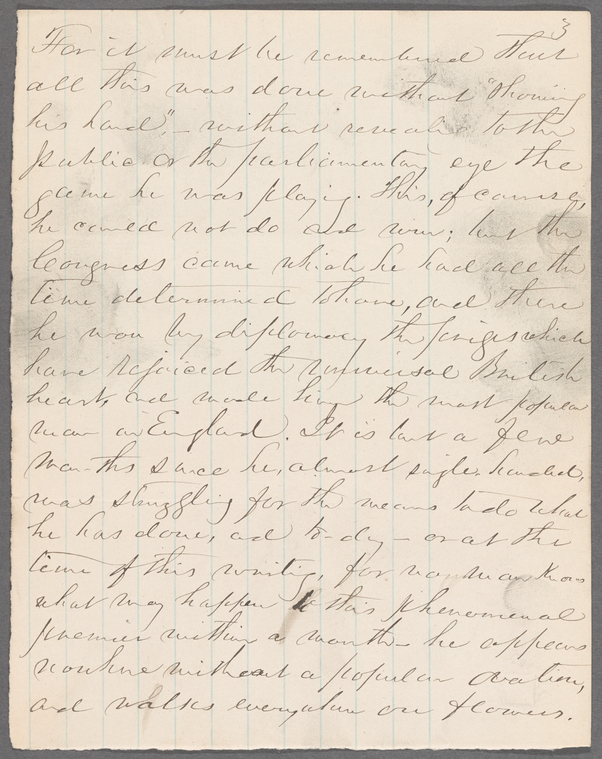 3
For it must be remembered that
all this was done without "showing
his hand", – without revealing to the
public or the parliamentary eye the
game he was playing. This, of course,
he could not do and win; but the
Congress came which he had all the
time determined to have, and there
he won by diplomacy the prizes which
have rejoiced the universal British
heart, and made him the most popular
man in England. It is but a few
months since he, almost single-handed,
was struggling for the means to do what
he has done, and to-day – or at the
time of this writing, for no man knows
what may happen to this phenomenal
premier within a month – he appears
nowhere without a popular ovation,
and walks everywhere on flowers.